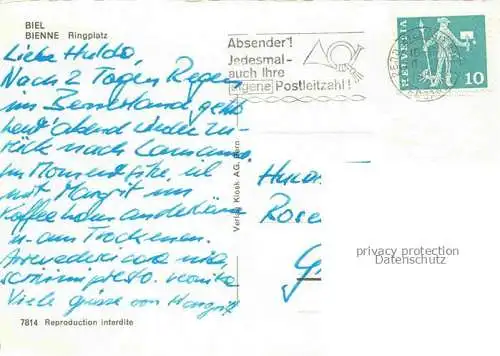 BIEL
BIENNE Ringplatz
Liebe Huldo,
Nach 2 Tagen Regen
im Bernerland, geht
heut' abend wieder zu-
rück nach Lausanne.
im Moment sitze, ich
mit Margrit im
Kaffeehaus an der Wärme
u. am Trockenen.
Arrivederci cara mia,
scrivimi presto. Monika
Viele grüsse von Margrit
7814 Reproduction interdite
Verlag Kiosk AG, Bern
Absender!
Jedesmal-
auch Ihre
eigene Postleitzahl!
HELVETIA
10
Rose
privacy protection
Datenschutz